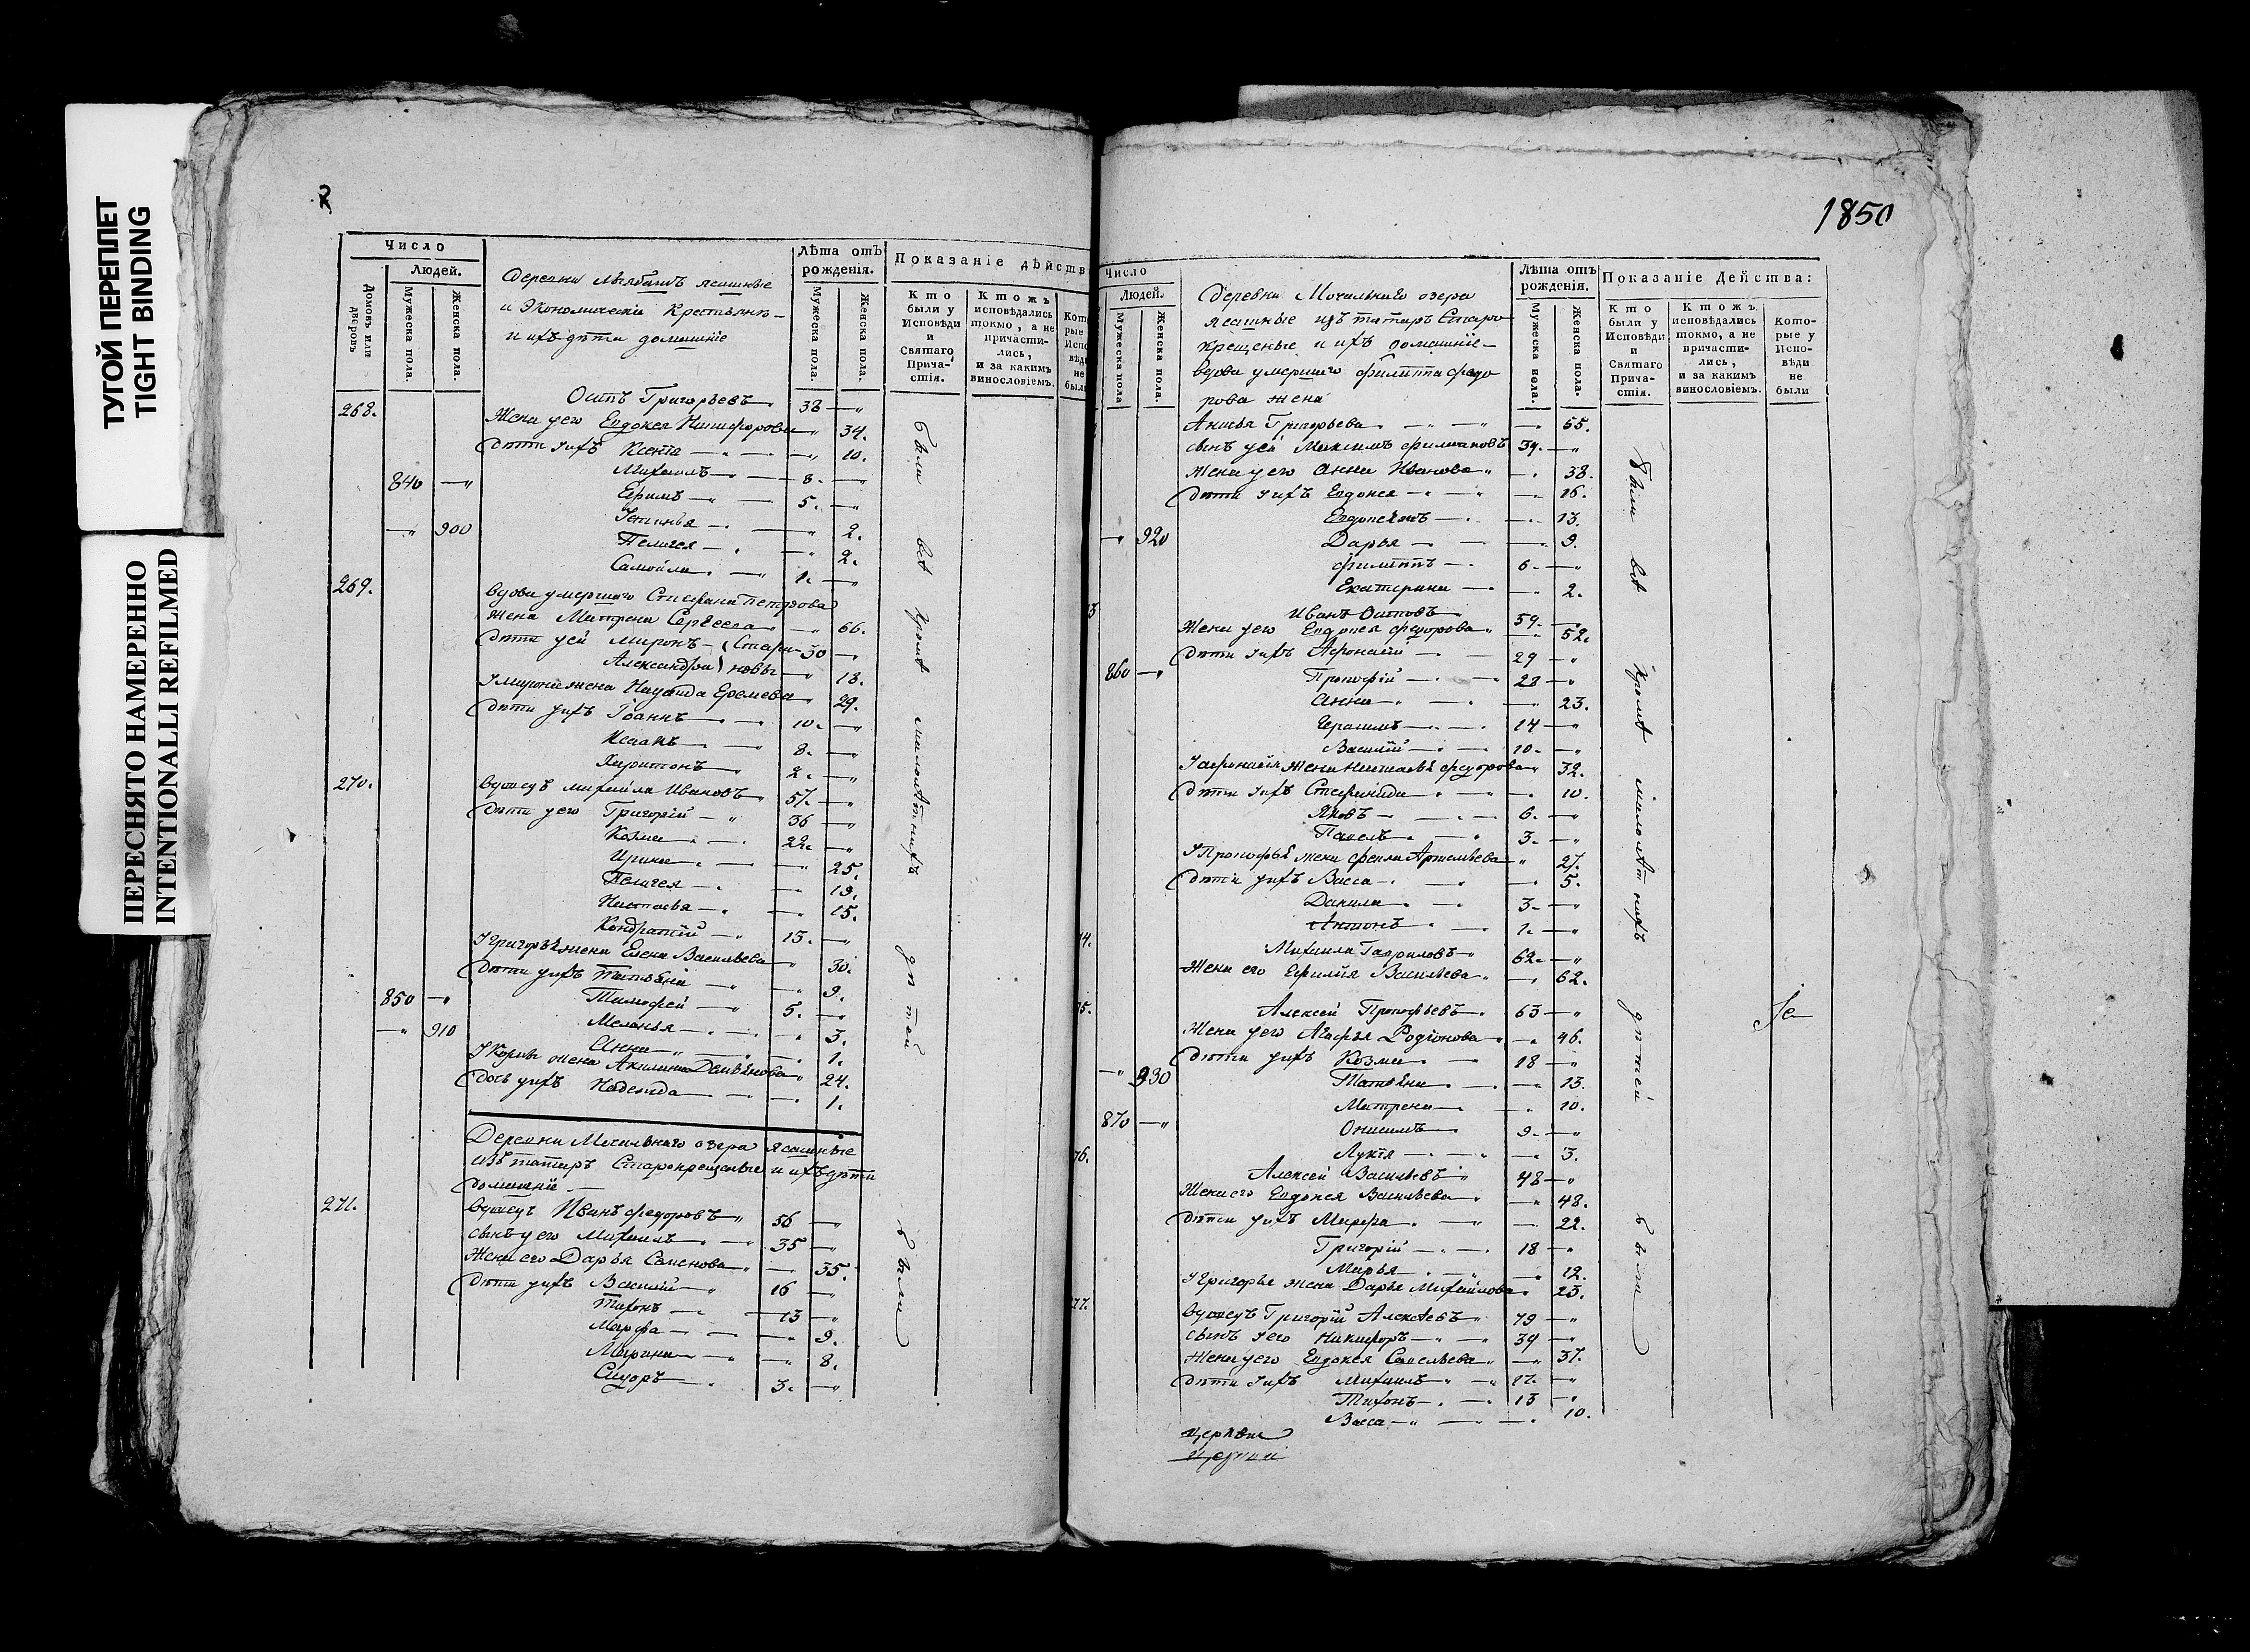 ТУГОЙ ПЕРЕПЛЕТ
TIGHT BINDING
ПЕРЕСНЯТО НАМЕРЕННО
INTENTIONALLI REFILMED
Число
Людей.
Домовъ или дворовъ
Мужеска пола.
Женска пола.
Деревни ясашные
и Экономически Крестьяне
и ихъ дѣти домашніе
Лѣта отъ рожденія.
Мужеска пола.
Женска пола.
Показаніе дѣйств
Кто были у Исповѣди и Святаго Прича-стія.
Ктожъ исповѣдались токмо, а не причасти-лись, и за какимъ винословіемъ.
268. Осипъ Григорьевъ 38
Жена его Евдокея Никифорова 34.
Дѣти ихъ Ксенія 10.
Михаилъ 8.
840 Ефимъ 5.
900 Устинья 2.
Пелагея 2.
Самойла 1.
269. Вдова умершаго Стефана Петрова
жена Матрена Сергеева 66.
Дѣти Миронъ 30
Александра 18.
жена Еремева 29.
Дѣти ихъ Іоаннъ 10.
Исаакъ 8.
Харитонъ 2.
270. Вдовецъ Михайла Ивановъ 57.
Дѣти его Григорій 36
Козма 22.
Ирина 25.
Пелагея 19.
Настасья 15.
Кондратій 13.
жена Елена Васильева 30.
Дѣти ихъ Татьяна 9.
850 Тимофей 5.
910 Меланья 3.
Анна 1.
жена Акилина 24.
Дочь ихъ Надежда 1.
Деревни Мочильнаго озера ясашные
изъ татаръ Старокрещеные и ихъ дѣти
домашніе
271. Вдовецъ Иванъ Федоровъ 56
сынъ его Михаилъ 35
Жена его Дарья Семенова 35.
Дѣти ихъ Василій 16
Тихонъ 13
Марфа 9.
Марина 8.
Сидоръ 3.
были всѣ кромѣ малолѣтнихъ дѣтей были
1850
Число
Людей.
Мужеска пола
Женска пола.
Деревни Мочильнаго озера
ясашные изъ татаръ Старо
крещеные и ихъ домашніе
вдова умершаго Филиппа Федо
рова жена
Лѣта отъ рожденія.
Мужеска пола.
Женска пола.
Показаніе Действа:
Кто были у Исповѣди и Святаго Прича-стія.
Ктожъ исповѣдались токмо, а не причасти-лись, и за какимъ винословіемъ.
Кото-рые у Испо-вѣди не были
Григорьева 55.
сынъ Максимъ Филиповъ 39.
Жена его Анна Иванова 38.
Дѣти ихъ Евдокея 16.
13.
920 Дарья 9.
Филиппъ 6.
Екатерина 2.
Иванъ Осиповъ 59.
Жена его Евдокея Федорова 52.
Дѣти ихъ Афонасій 29
860 Прокофій 28
Анна 23.
Герасимъ 14
Василій 10.
Афонасія жена Настасья Федорова 32.
Дѣти ихъ Стефанида 10.
Яковъ 6.
Павелъ 3.
жена Фекла Артемьева 27.
Дѣти ихъ Васса 5.
Данила 3.
Антонъ 1.
Михаила Гавриловъ 62.
Жена его Васильева 62.
Алексей Прокофьевъ 63
Жена его Агафья Родіонова 46.
Дѣти ихъ Козма 18
930 Татьяна 13.
Матрена 10.
870 Онисимъ 9.
Лукія 3.
Алексей Васильевъ 48
Жена его Евдокея Васильева 48.
Дѣти ихъ Марфа 22.
Григорій 18
Марья 12.
Григорья жена Дарья Михайлова 23.
Вдовецъ Григорій Алексѣевъ 79
сынъ его Никифоръ 39
Жена его Евдокея Савельева 37.
Дѣти ихъ Михаилъ 17.
Тихонъ 13
Васса 10.
были всѣ кромѣ малолѣтнихъ дѣтей были